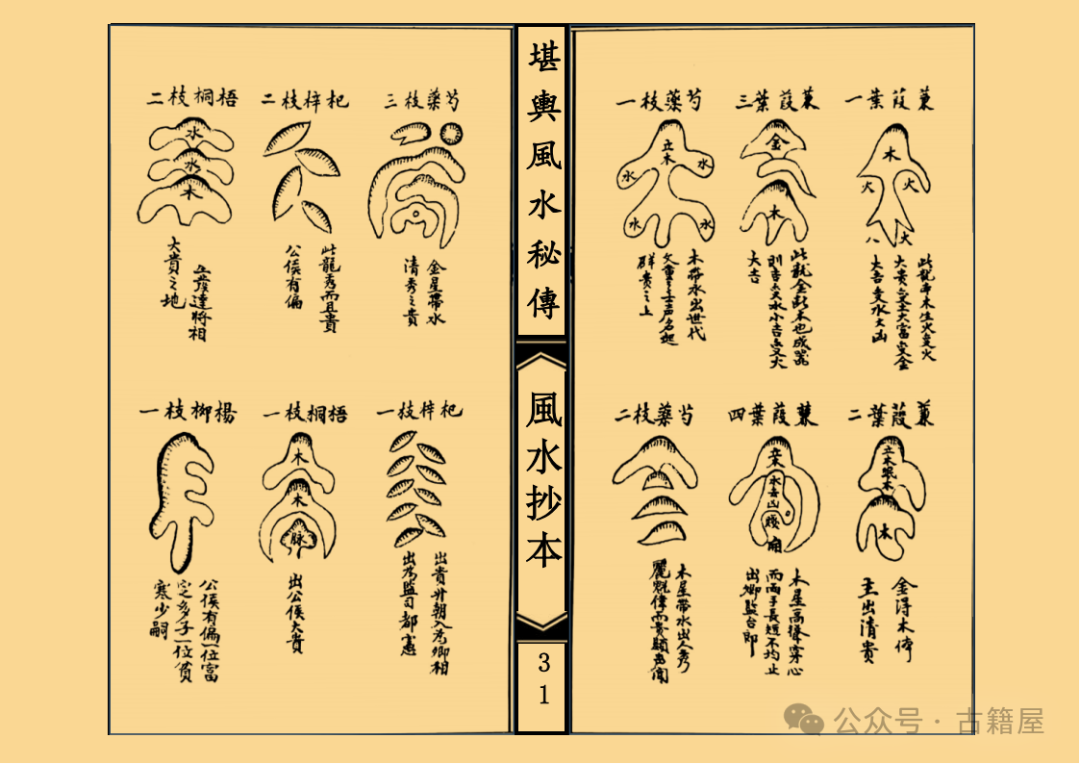 蒹葭葉一
木
火
火
火
八
此龍車木生火變火
大貴變土大富變金
大吉變水大凶
蒹葭葉三
金
木
此龍金趴木也成器
則吉變水小吉變火
大吉
芍藥枝一
立木
水
水
水
水
木帶水出世代
文章之士声名起
群贵之上
蒹葭葉二
立木
木
金得木体
主出清貴
蒹葭葉四
立木
水
凶
木星高聳穿心
而兩手長短不均止
出卿監台郎
芍藥枝二
木星帶水出人秀
麗魁偉而貴顯
堪輿風水秘傳
風水抄本
31
芍藥枝三
金星帶水
清秀之貴
杞梓枝二
此龍秀而且貴
公侯有偏
梧桐枝二
水
水
木
立產達將相
大貴之地
杞梓枝一
出貴升朝入为卿相
出为監司都憲
梧桐枝一
木
木
脉
出公侯大貴
楊柳枝一
公侯有偏一位富
定多子一位貧
寒少嗣
公众号 · 古籍屋